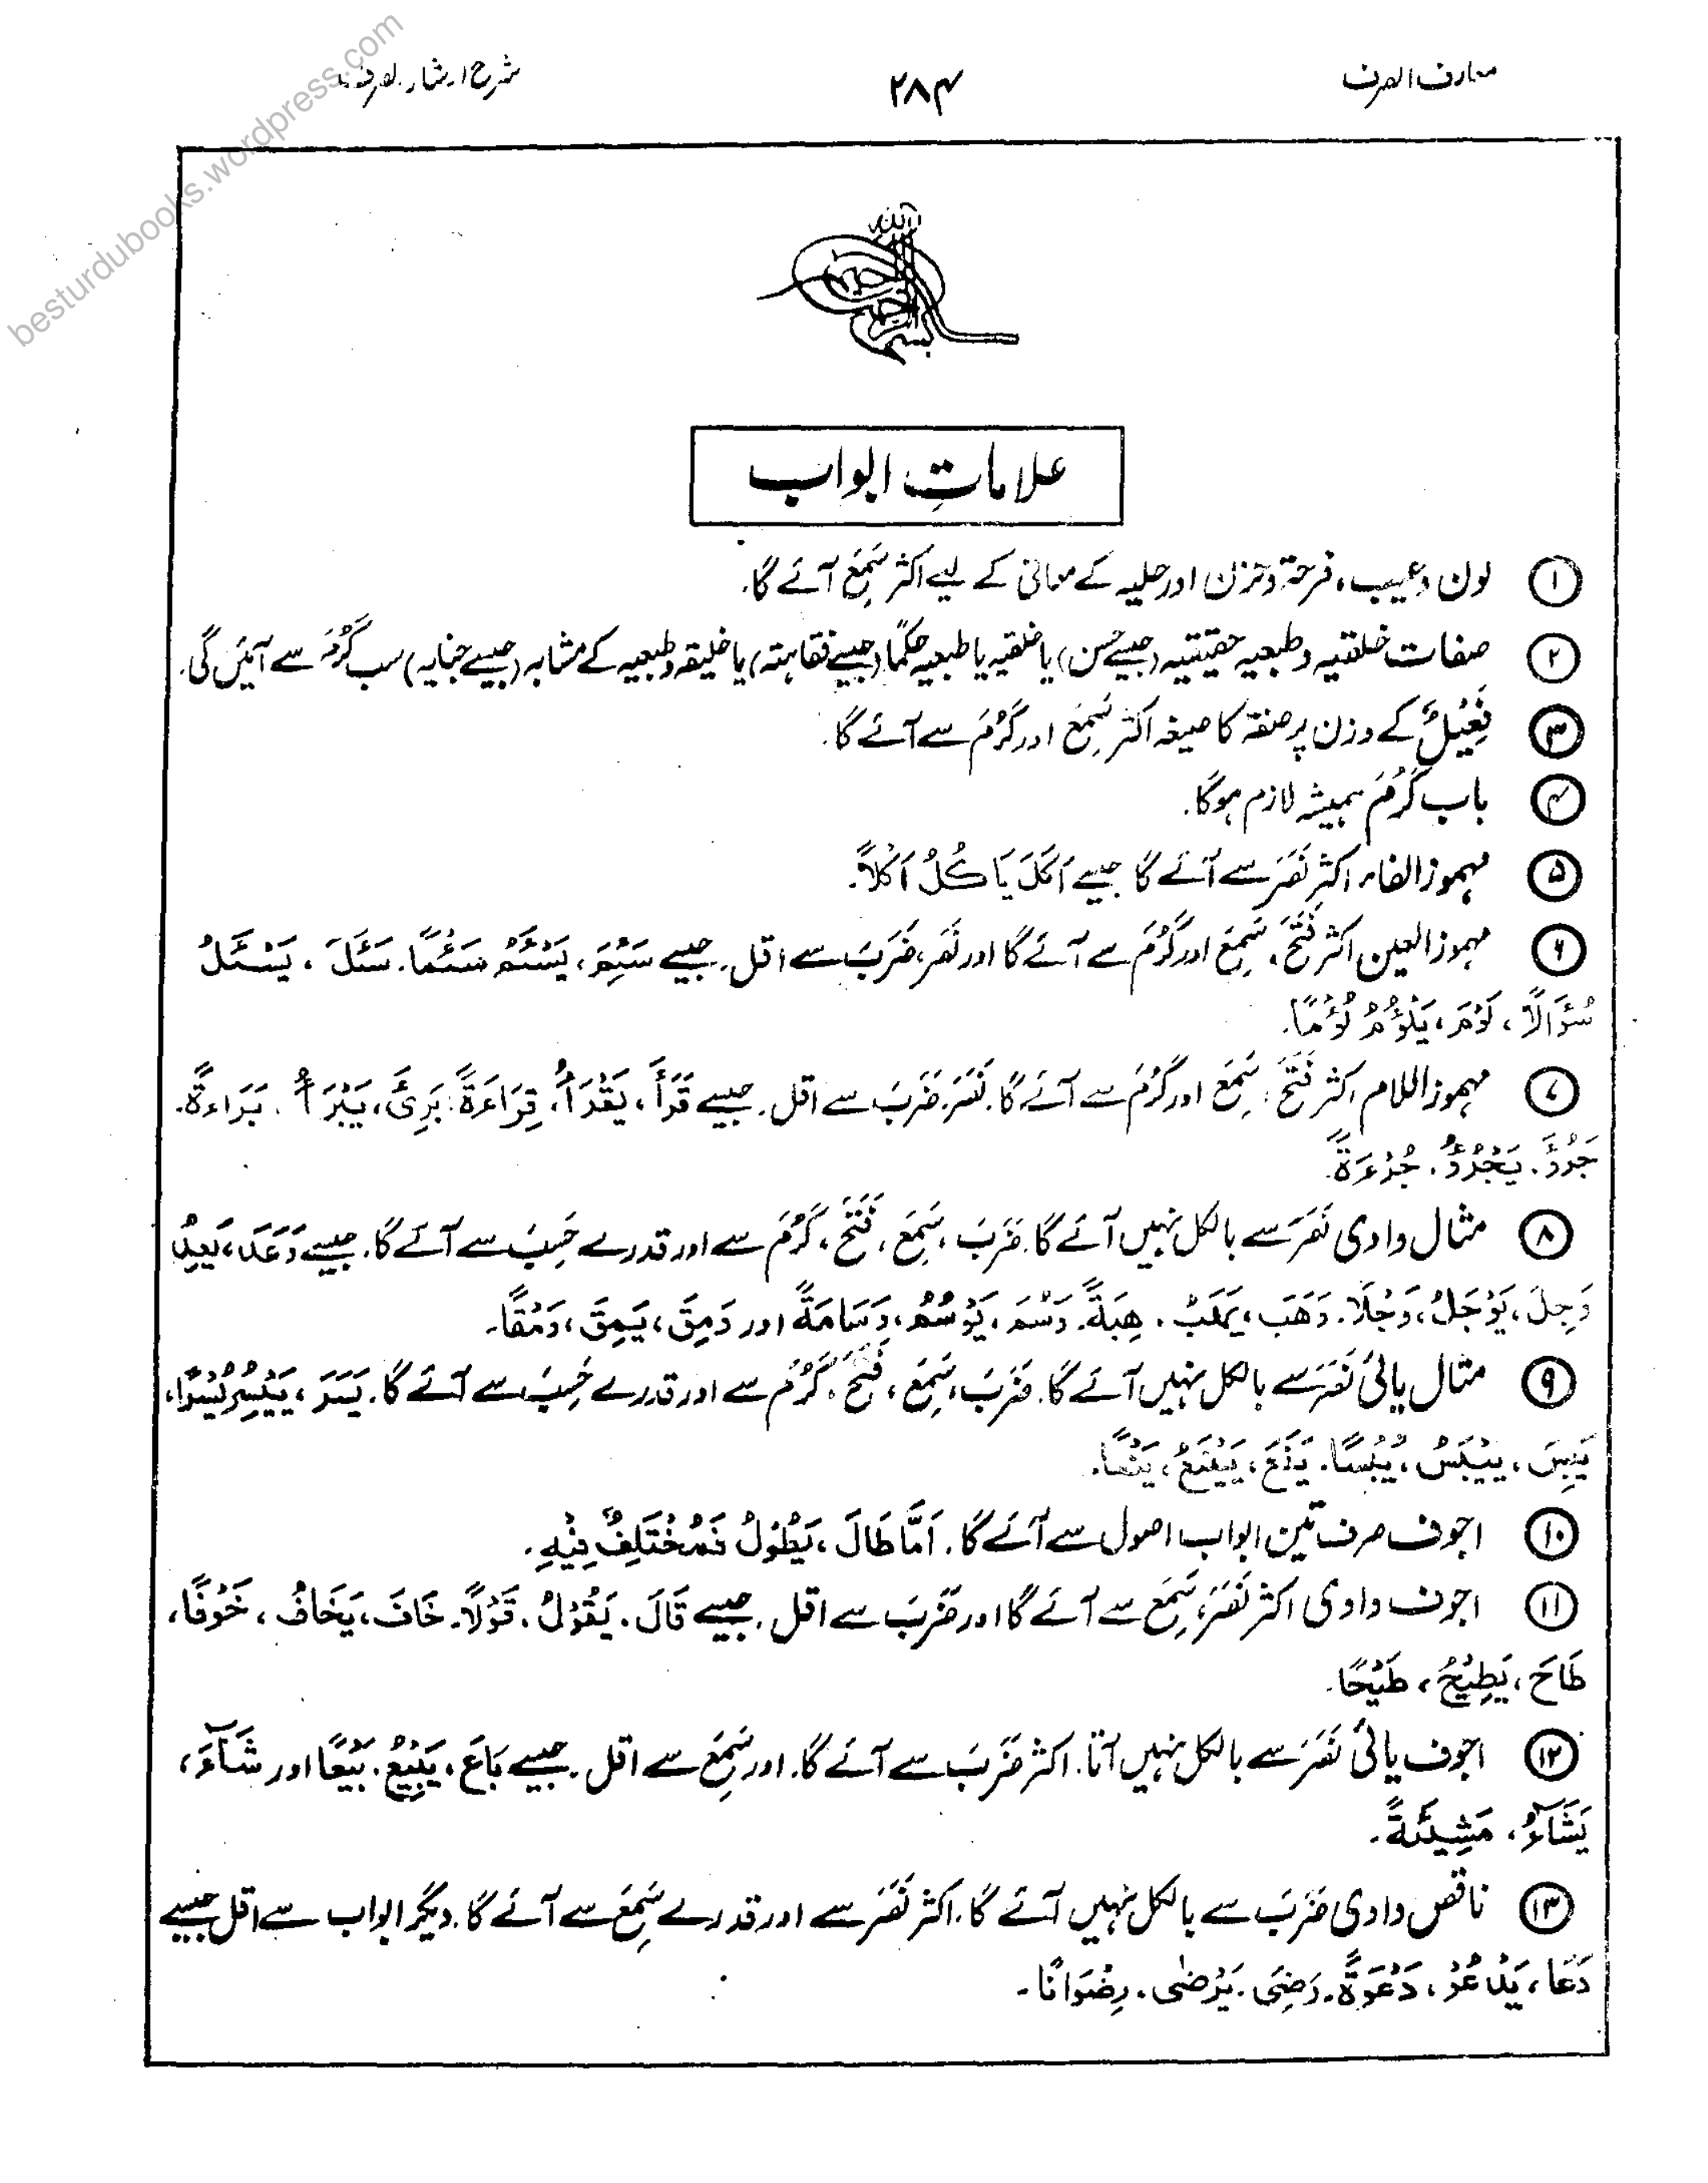 معارف الصرف
۲۸۴
شرح ارشاد الصرف
besturdubooks.wordpress.com
بسم اللہ الرحمن الرحیم
علاماتِ ابواب
۱ لون وعیب، فرحۃ وحزن اور حلیہ کے معانی کے لیے اکثر سَمِعَ آئے گا.
۲ صفات خلقیہ وطبعیہ حقیقیہ (جیسے حُسن) یا خلقیہ یا طبعیہ حکمًا (جیسے فقاہتہ) یا خلیقہ وطبعیہ کے مشابہ (جیسے جنابہ) سب کَرُمَ سے آئیں گی.
۳ فَعِیْلٌ کے وزن پر صفۃ کا صیغہ اکثر سَمِعَ اور کَرُمَ سے آئے گا.
۴ باب کَرُمَ ہمیشہ لازم ہوگا.
۵ مہموز الفاء اکثر نَصَرَ سے آئے گا جیسے اَکَلَ یَاکُلُ اَکْلًا.
۶ مہموز العین اکثر فَتَحَ، سَمِعَ اور کَرُمَ سے آئے گا اور نَصَرَ، ضَرَبَ سے اقل. جیسے سَئِمَ، یَسْئَمُ سَئْمًا. سَئَلَ، یَسْئَلُ
سُؤَالًا، لَؤُمَ، یَلْؤُمُ لُؤْمًا.
۷ مہموز اللام اکثر فَتَحَ، سَمِعَ اور کَرُمَ سے آئے گا. نَصَرَ. ضَرَبَ سے اقل. جیسے قَرَأَ، یَقْرَأُ، قِرَاءَةً. بَرِئَ، یَبْرَأُ. بَرَاءةً.
جَرُؤَ. یَجْرُؤُ. جُرْءَةً.
۸ مثال وادی نَصَرَ سے بالکل نہیں آئے گا. ضَرَبَ، سَمِعَ، فَتَحَ، کَرُمَ سے اور قدرے حَسِبَ سے آئے گا. جیسے وَعَدَ، یَعِدُ
وَجِلَ، یَوْجَلُ، وَجْلًا. وَهَبَ، یَهَبُ. هِبَةً. وَسُمَ، یَوْسُمُ، وَسَامَةً اور وَمِقَ، یَمِقُ، وَمْقًا.
۹ مثال یائی نَصَرَ سے بالکل نہیں آئے گا. ضَرَبَ، سَمِعَ، فَتَحَ، کَرُمَ سے اور قدرے حَسِبَ سے آئے گا. یَسَرَ، یَیْسِرُ یُسْرًا،
یَبِسَ، یَیْبَسُ، یُبْسًا. یَنَعَ، یَیْنَعُ، یَنْعًا.
۱۰ اجوف صرف تین ابواب اصول سے آئے گا. اَمَّا طَالَ، یَطُوْلُ فَمُخْتَلِفٌ فِیْهِ.
۱۱ اجوف وادی اکثر نَصَرَ، سَمِعَ سے آئے گا اور ضَرَبَ سے اقل. جیسے قَالَ. یَقُوْلُ. قَوْلًا. خَافَ، یَخَافُ، خَوْفًا،
طَاحَ، یَطِیْحُ، طَیْحًا.
۱۲ اجوف یائی نَصَرَ سے بالکل نہیں آتا. اکثر ضَرَبَ سے آئے گا. اور سَمِعَ سے اقل. جیسے بَاعَ، یَبِیْعُ. بَیْعًا اور شَآءَ،
یَشَآءُ، مَشِیْئَةً.
۱۳ ناقص وادی ضَرَبَ سے بالکل نہیں آئے گا. اکثر نَصَرَ سے اور قدرے سَمِعَ سے آئے گا. دیگر ابواب سے اقل جیسے
دَعَا، یَدْعُوْ، دَعْوَةً. رَضِیَ. یَرْضٰی. رِضْوَانًا.